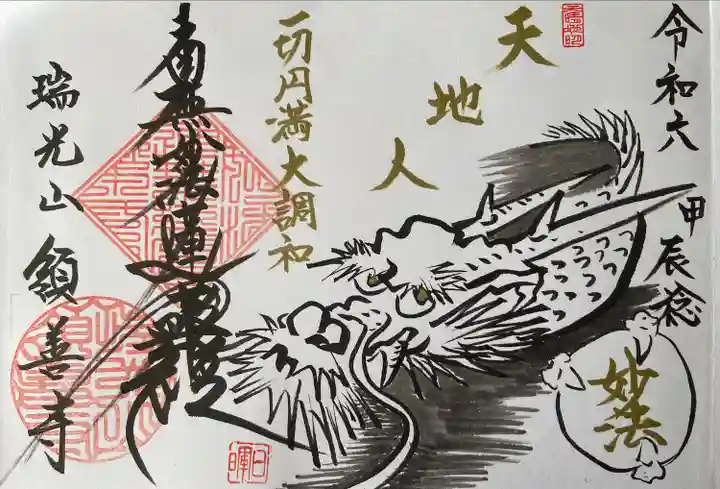 令和六
甲辰稔
天
地
人
妙法
一切円満大調和
南無妙法蓮華経
瑞光山 領善寺
日暉